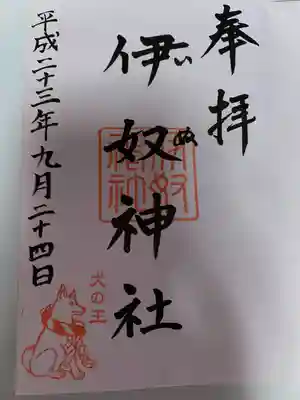 奉拝
伊奴神社
いぬ
伊奴神社
犬の王
平成二十三年九月二十四日